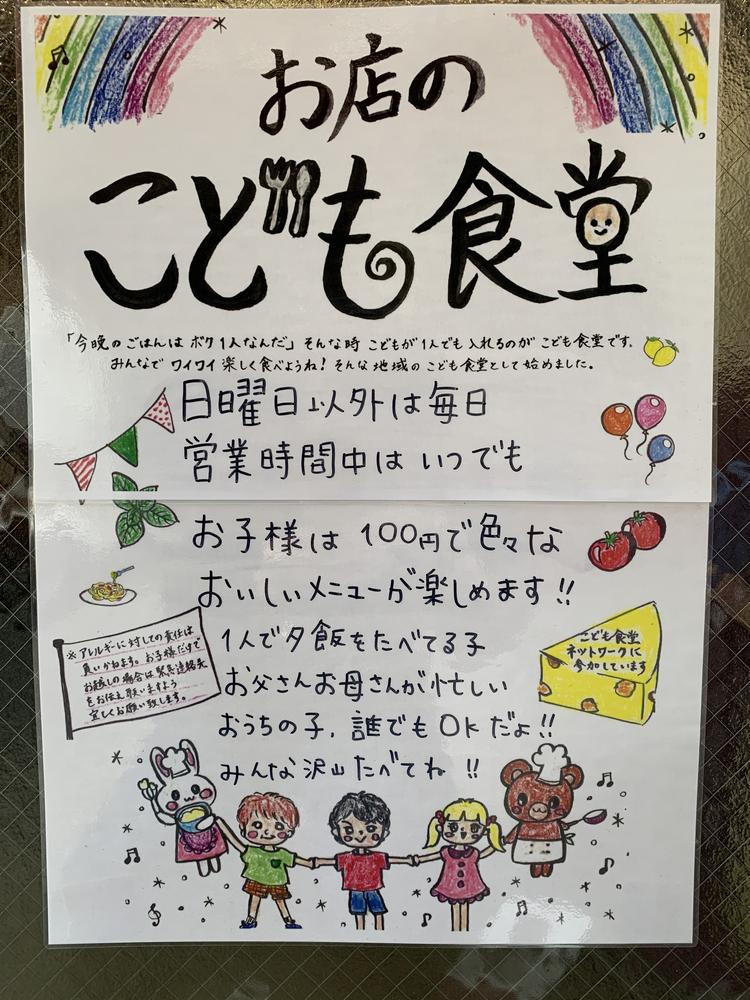 お店の
こども食堂
「今晩のごはんは ボク1人なんだ」そんな時 こどもが1人でも入れるのが こども食堂です。
みんなで ワイワイ 楽しく食べようね! そんな地域のこども食堂として始めました。
日曜日以外は毎日
営業時間中は いつでも
お子様は 100円で色々な
おいしいメニューが楽しめます!!
※アレルギーに対しての責任は
負いかねます。お子様だけで
お越しの場合は緊急連絡先
をお伝え願いますよう
宜しくお願い致します。
1人で夕飯をたべてる子
お父さんお母さんが忙しい
おうちの子、誰でもOKだよ!!
みんな沢山たべてね !!
こども食堂
ネットワークに
参加しています